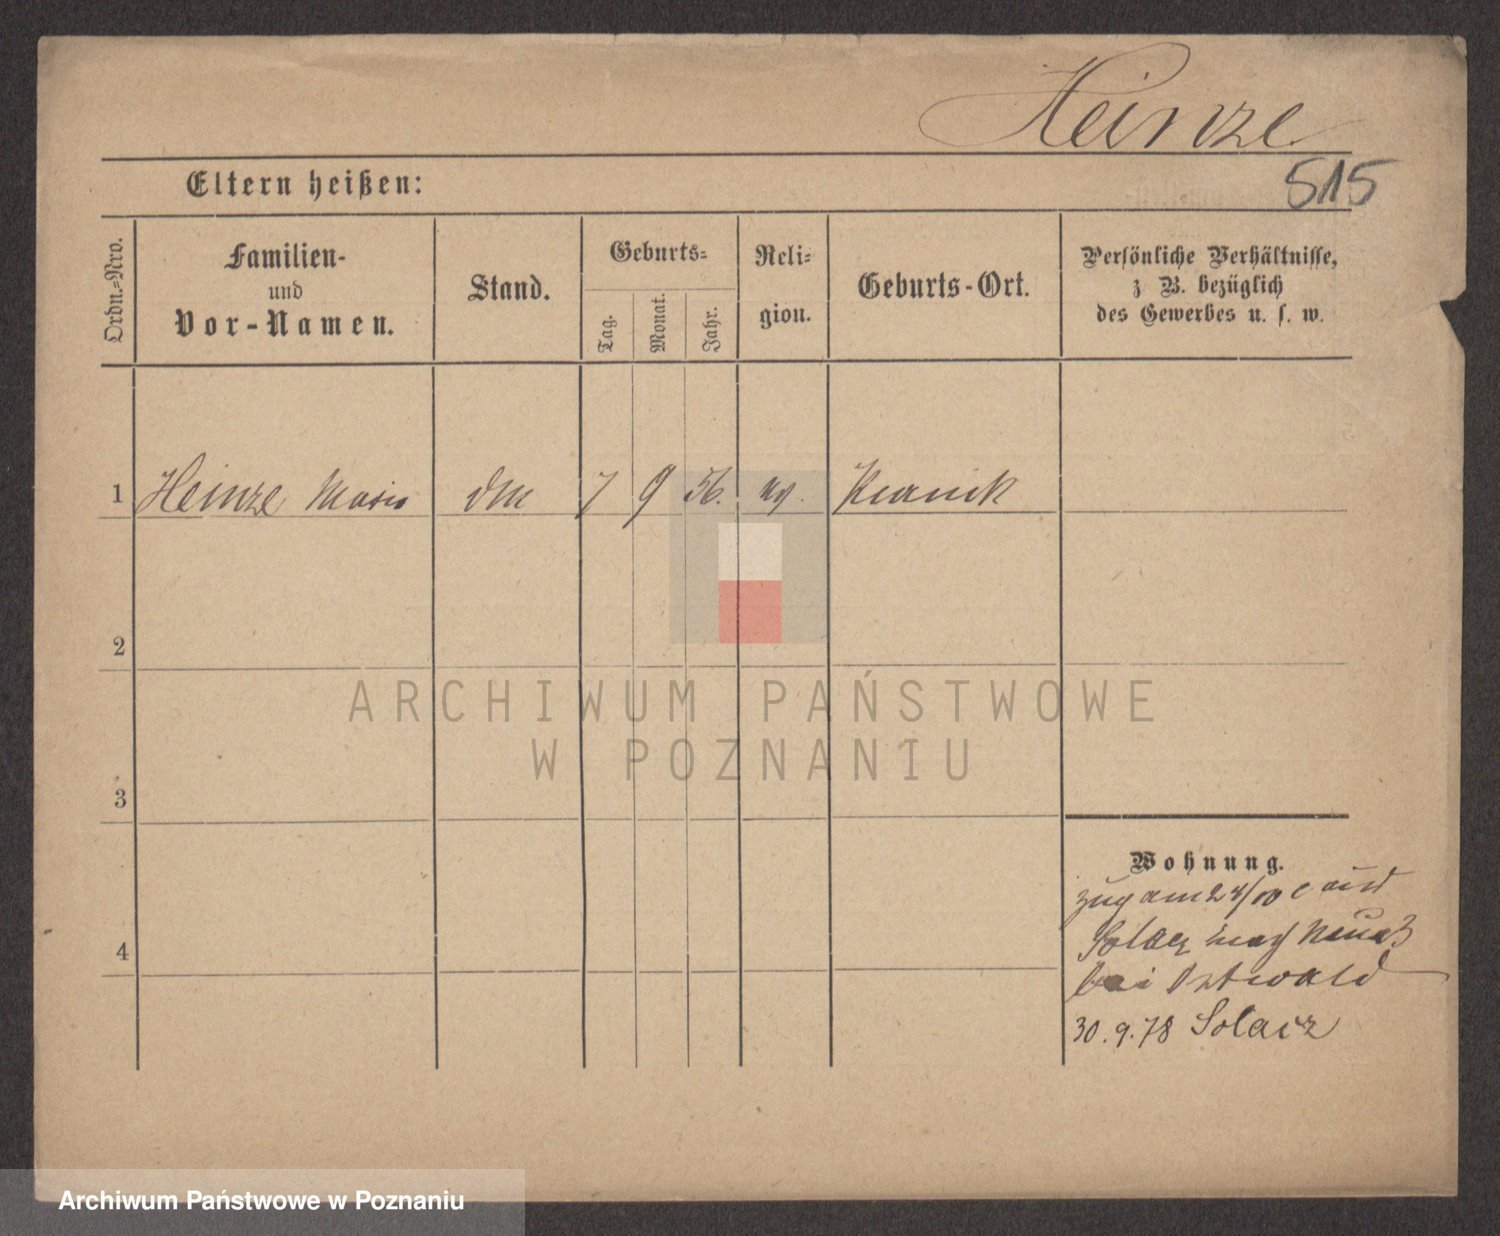 Heinze
515
Eltern heißen:
Ordn.-Nro.
Familien-
und
Vor-Namen.
Stand.
Geburts-
Tag.
Monat.
Jahr.
Reli-
gion.
Geburts-Ort.
Persönliche Verhältnisse,
z B. bezüglich
des Gewerbes u. s. w.
1 Heinze Maria 7 9 56. Kranik
2
3
4
Wohnung.
zug am 24/10 c aus
Solacz nach
bei Ostwald
30.9.78 Solacz
ARCHIWUM PAŃSTWOWE
W POZNANIU
Archiwum Państwowe w Poznaniu